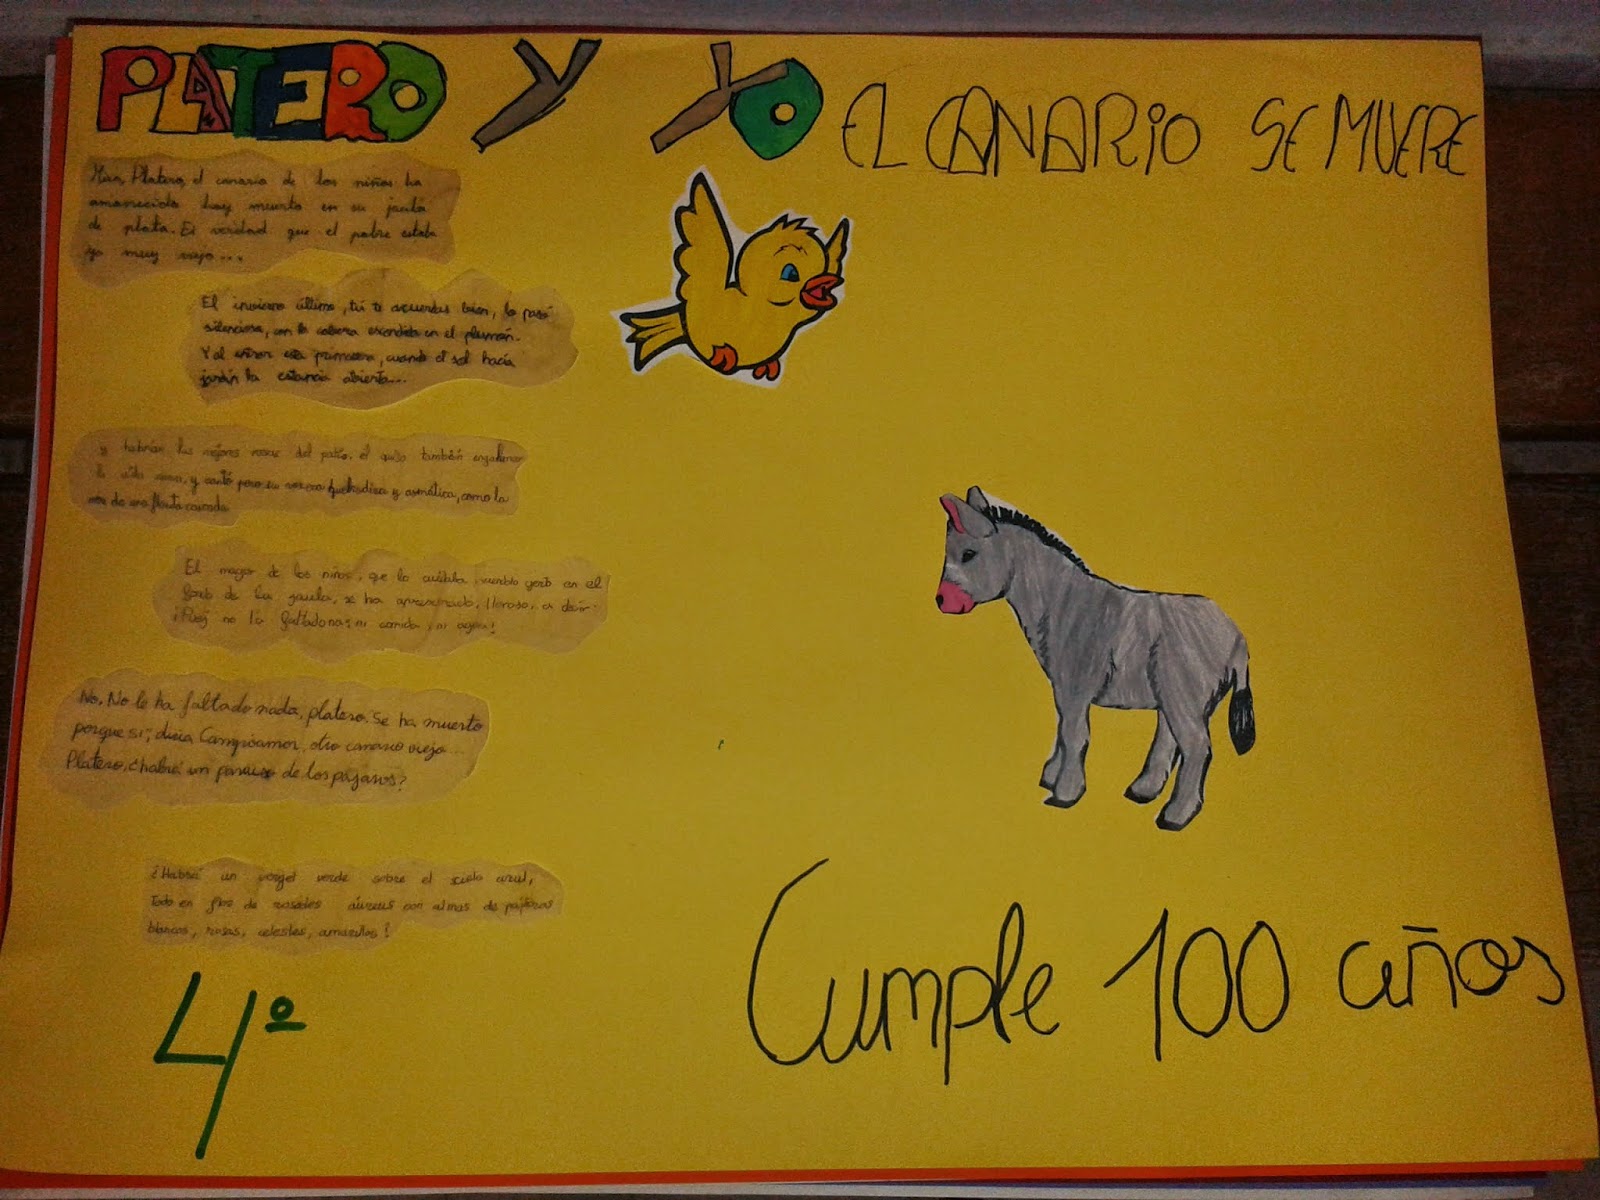 PLATERO Y YO EL CANARIO SE MUERE
Mira, Platero, el canario de los niños ha
amanecido hoy muerto en su jaula
de plata. Es verdad que el pobre estaba
ya muy viejo...
El invierno último, tú te acuerdas bien, lo pasó
silencioso, con la cabeza escondida en el plumón.
Y al entrar esta primavera, cuando el sol hacía
jardín la estancia abierta...
y habrían las mejores rosas del patio, el quiso también engalanar
la vida nueva, y cantó pero su voz era quebradiza y asmática, como la
voz de una flauta cascada
El mayor de los niños, que lo cuidaba, viendolo yerto en el
fondo de la jaula, se ha apresurado, lloroso, a decir:
¡Puej no la faltadona; ni comida, ni agua!
No. No le ha faltado nada, platero. Se ha muerto
porque si; diria Campoamor, otro canario viejo...
Platero, ¿habrá un paraiso de los pajaros?
¿Habrá un vergel verde sobre el cielo azul,
todo en flor de rosales áureos con almas de pájaros
blancos, rosas, celestes, amarillos!
4º
Cumple 100 años